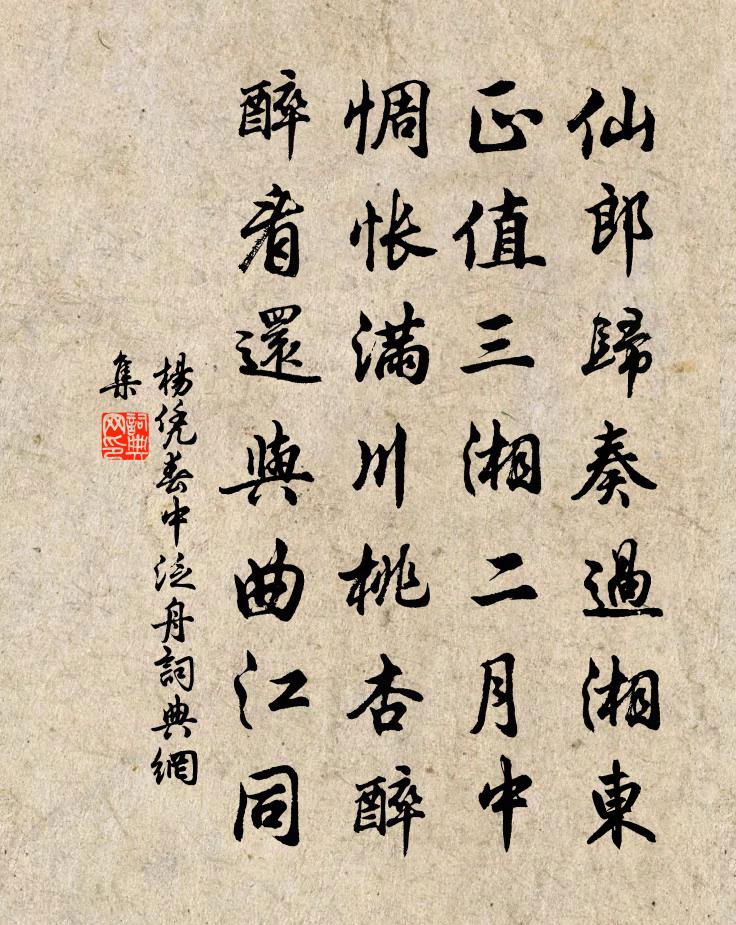 仙郎歸奏過湘東
正值三湘二月中
惆悵滿川桃杏醉
醉看還與曲江同
楊凭春中泛舟詞典網
集
詞典網印